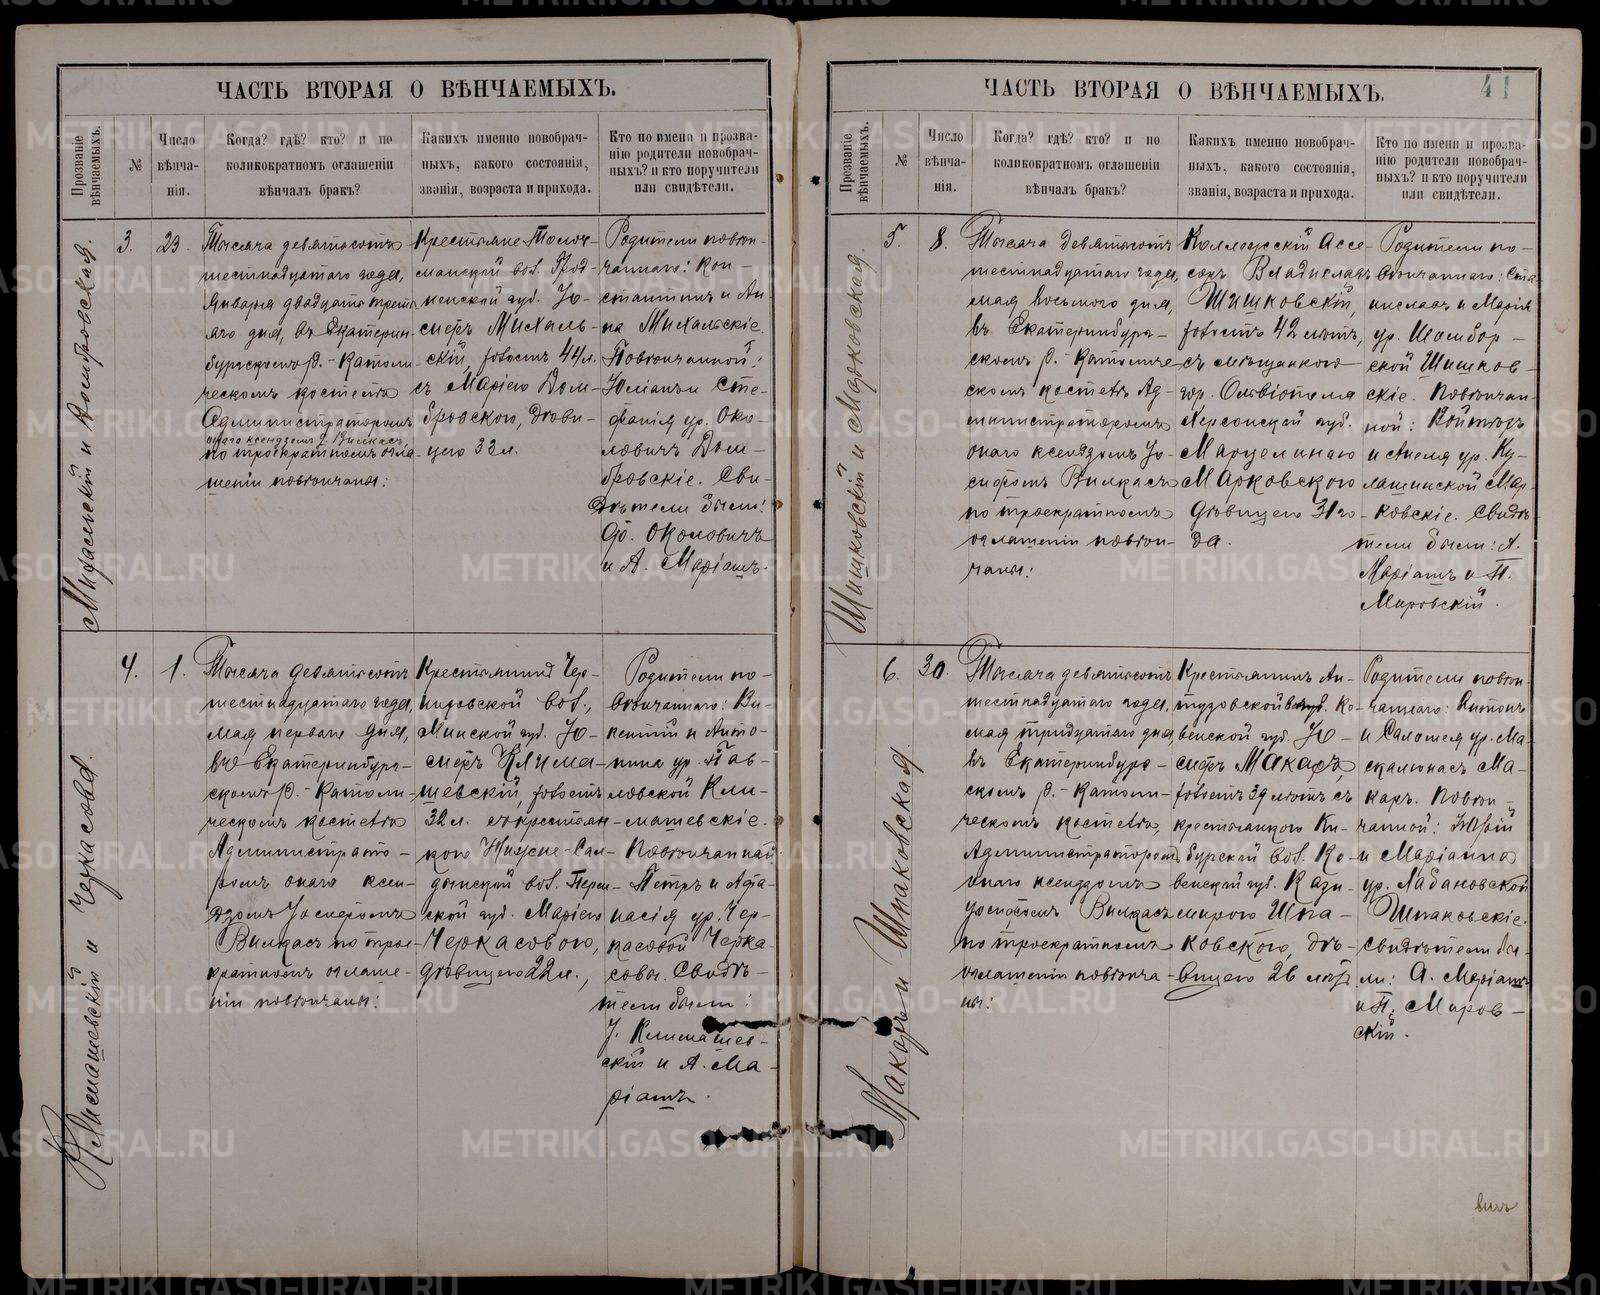 ЧАСТЬ ВТОРАЯ О ВѢНЧАЕМЫХЪ.
Прозваніе вѣнчаемыхъ.
№
Число
вѣнча-
нія.
Когда? гдѣ? кто? и по
коликократномъ оглашеніи
вѣнчалъ бракъ?
Какихъ именно новобрач-
ныхъ, какого состоянія,
званія, возраста и прихода.
Кто по имени и прозва-
нію родители новобрач-
ныхъ? и кто поручители
или свидѣтели.
3.
23.
Тысяча девятьсотъ
шестнадцатаго года,
Января двадцать треть-
яго дня, въ Екатерин-
бургскомъ Р.-Католи-
ческомъ костелѣ
Администраторомъ
онаго ксендзомъ І. Вилкасъ,
по троекратномъ огла-
шеніи повѣнчаны:
Крестьяне
вол. Грод-
ненской губ. Іо-
сифъ Михаль-
скій, холостъ 44 л.
съ Маріею Дом-
бровскою, дѣви-
цею 33 л.
Родители повѣн-
чаннаго: Кон-
стантинъ и Ан-
на Михальскіе.
Повѣнчанной:
Юліанъ и Сте-
фанія ур. Око-
ловичъ Дом-
бровскіе. Сви-
дѣтели были:
Ф. Околовичъ
и А. Маріамъ.
4.
1.
Тысяча девятьсотъ
шестнадцатаго года,
мая перваго дня,
въ Екатеринбург-
скомъ Р.-Католи-
ческомъ костелѣ
Администрато-
ромъ онаго ксен-
дзомъ Іосифомъ
Вилкасъ по трое-
кратномъ оглаше-
ніи повѣнчаны:
Крестьянинъ
вол.,
Минской губ. Іо-
сифъ Клима-
шевскій, холостъ
32 л. съ крестьян-
кою Нижне-Сал-
динской вол. Перм-
ской губ. Маріею
Черкасовою,
дѣвицею 22 л.,
Родители по-
вѣнчаннаго: Ви-
кентій и Анто-
нина ур. Пав-
ловской Кли-
машевскіе.
Повѣнчанной:
Петръ и Афа-
насія ур. Чер-
касовой Черка-
совы. Свидѣ-
тели были:
І. Климашев-
скій и А. Ма-
ріамъ.
Климашевскій и Черкасова.
ЧАСТЬ ВТОРАЯ О ВѢНЧАЕМЫХЪ.
41
Прозваніе вѣнчаемыхъ.
№
Число
вѣнча-
нія.
Когда? гдѣ? кто? и по
коликократномъ оглашеніи
вѣнчалъ бракъ?
Какихъ именно новобрач-
ныхъ, какого состоянія,
званія, возраста и прихода.
Кто по имени и прозва-
нію родители новобрач-
ныхъ? и кто поручители
или свидѣтели.
Шишковскій и Марковская
5.
8.
Тысяча девятьсотъ
шестнадцатаго года,
мая восьмого дня,
въ Екатеринбург-
скомъ Р.-Католиче-
скомъ костелѣ Ад-
министраторомъ
онаго ксендзомъ Іо-
сифомъ Вилкасъ
по троекратномъ
оглашеніи повѣн-
чаны:
Коллежскій Ассе-
соръ Владиславъ
Шишковскій,
холостъ 42 лѣтъ,
съ мѣщанкою
гор. Ольвіополя
Херсонской губ.
Марцелиною
Марковскою
дѣвицею 31 го-
да.
Родители по-
вѣнчаннаго: Ста-
ниславъ и Марія
ур. Шомбор-
ской Шишков-
скіе. Повѣнчан-
ной: Войтѣхъ
и Анеля ур. Ку-
лашинской Мар-
ковскіе. Свидѣ-
тели были: А.
Маріамъ и П.
Мировскій.
6.
30.
Тысяча девятьсотъ
шестнадцатаго года,
мая тридцатаго дня,
въ Екатеринбург-
скомъ Р.-Католи-
ческомъ костелѣ,
Администраторомъ
онаго ксендзомъ
Іосифомъ Вилкасъ
по троекратномъ
оглашеніи повѣнча-
ны:
Крестьянинъ Ан-
тузовской вол. Ко-
венской губ. Іо-
сифъ Макаръ,
холостъ 39 лѣтъ съ
крестьянкою Ки-
бурской вол. Ко-
венской губ. Кази-
мирою Шпа-
ковскою, дѣ-
вицею 26 лѣтъ.
Родители повѣн-
чаннаго: Антонъ
и Саломея ур. Ма-
скалюнасъ Ма-
каръ. Повѣн-
чанной: Юрій
и Маріанна
ур. Лабановской
Шпаковскіе.
Свидѣтели бы-
ли: А. Маріамъ
и П. Миров-
скій.
Макаръ и Шпаковская.
METRIKI.GASO-URAL.RU